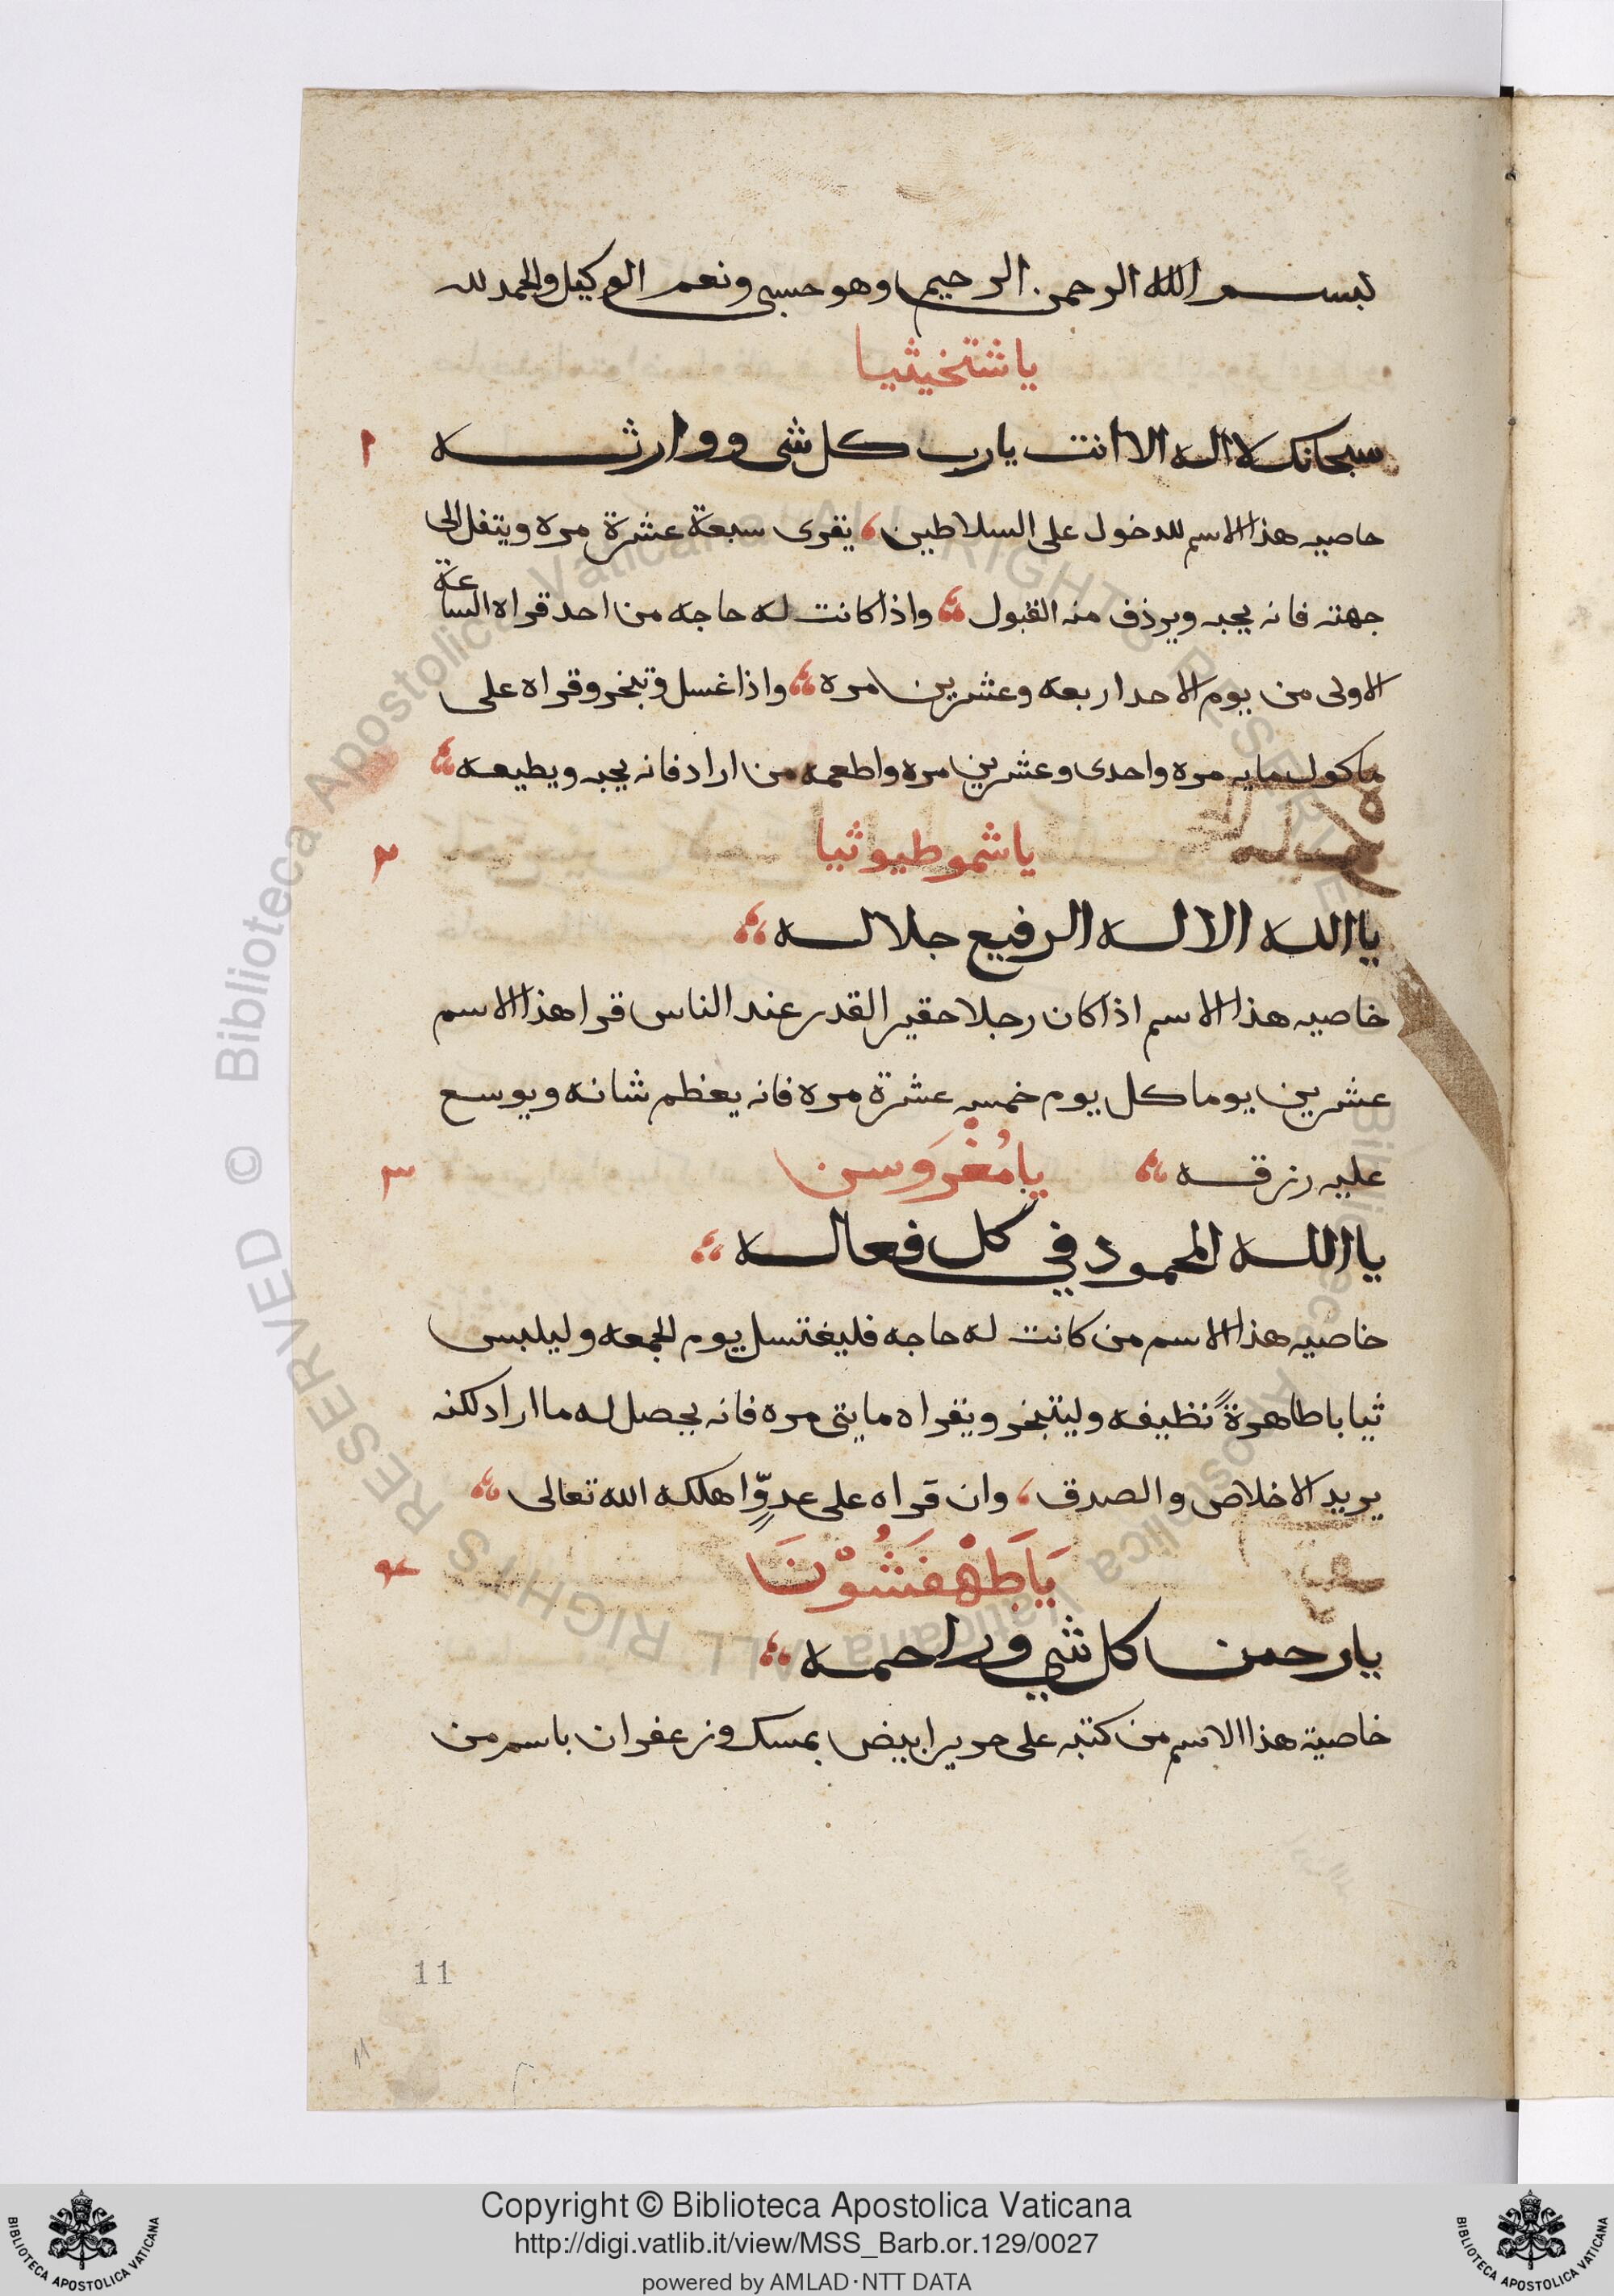 بسم الله الرحمن الرحيم وهو حسبى ونعم الوكيل والحمد لله
ياشتخيثيا
سبحانك لا اله الا انت يارب كل شى ووارثه
١
حاصيه هذا الاسم للدخول على السلاطين، يقرى سبعة عشرة مره ويتفل الى
جهته فانه يحبه ويرذف منه القبول واذا كانت له حاجه من احد قراه الساعة
الاولى من يوم الاحد اربعه وعشرين مره واذا غسل وتبخر وقراه على
ماكول مايه مره واحدى وعشرين مره واطعمه من اراد فانه يحبه ويطيعه
ياشموطيوثيا
٢
ياالله الاله الرفيع جلاله
خاصيه هذا الاسم اذا كان رجلا حقير القدر عند الناس قرا هذا الاسم
عشرين يوما كل يوم خمسه عشرة مره فانه يعظم شانه ويوسع
عليه رزقه يامُغْرَوسن
٣
ياالله المحمود في كل فعاله
خاصيه هذا الاسم من كانت له حاجه فليغتسل يوم الجمعه وليلبس
ثيابا طاهرةً نظيفه وليتبخر ويقراه مايتى مره فانه يحصل له ما اراد لكنه
يريد الاخلاص والصدق، وان قراه على عدوٍّ اهلكه الله تعالى
يَاَطَهْفَشُوْنَ
٤
يارحمن كل شي وراحمه
خاصية هذا الاسم من كتبه على حرير ابيض بمسك وزعفران باسم من
11
11
© Biblioteca Apostolica Vaticana ALL RIGHTS RESERVED
Copyright © Biblioteca Apostolica Vaticana
http://digi.vatlib.it/view/MSS_Barb.or.129/0027
powered by AMLAD·NTT DATA
BIBLIOTECA APOSTOLICA VATICANA
BIBLIOTECA APOSTOLICA VATICANA